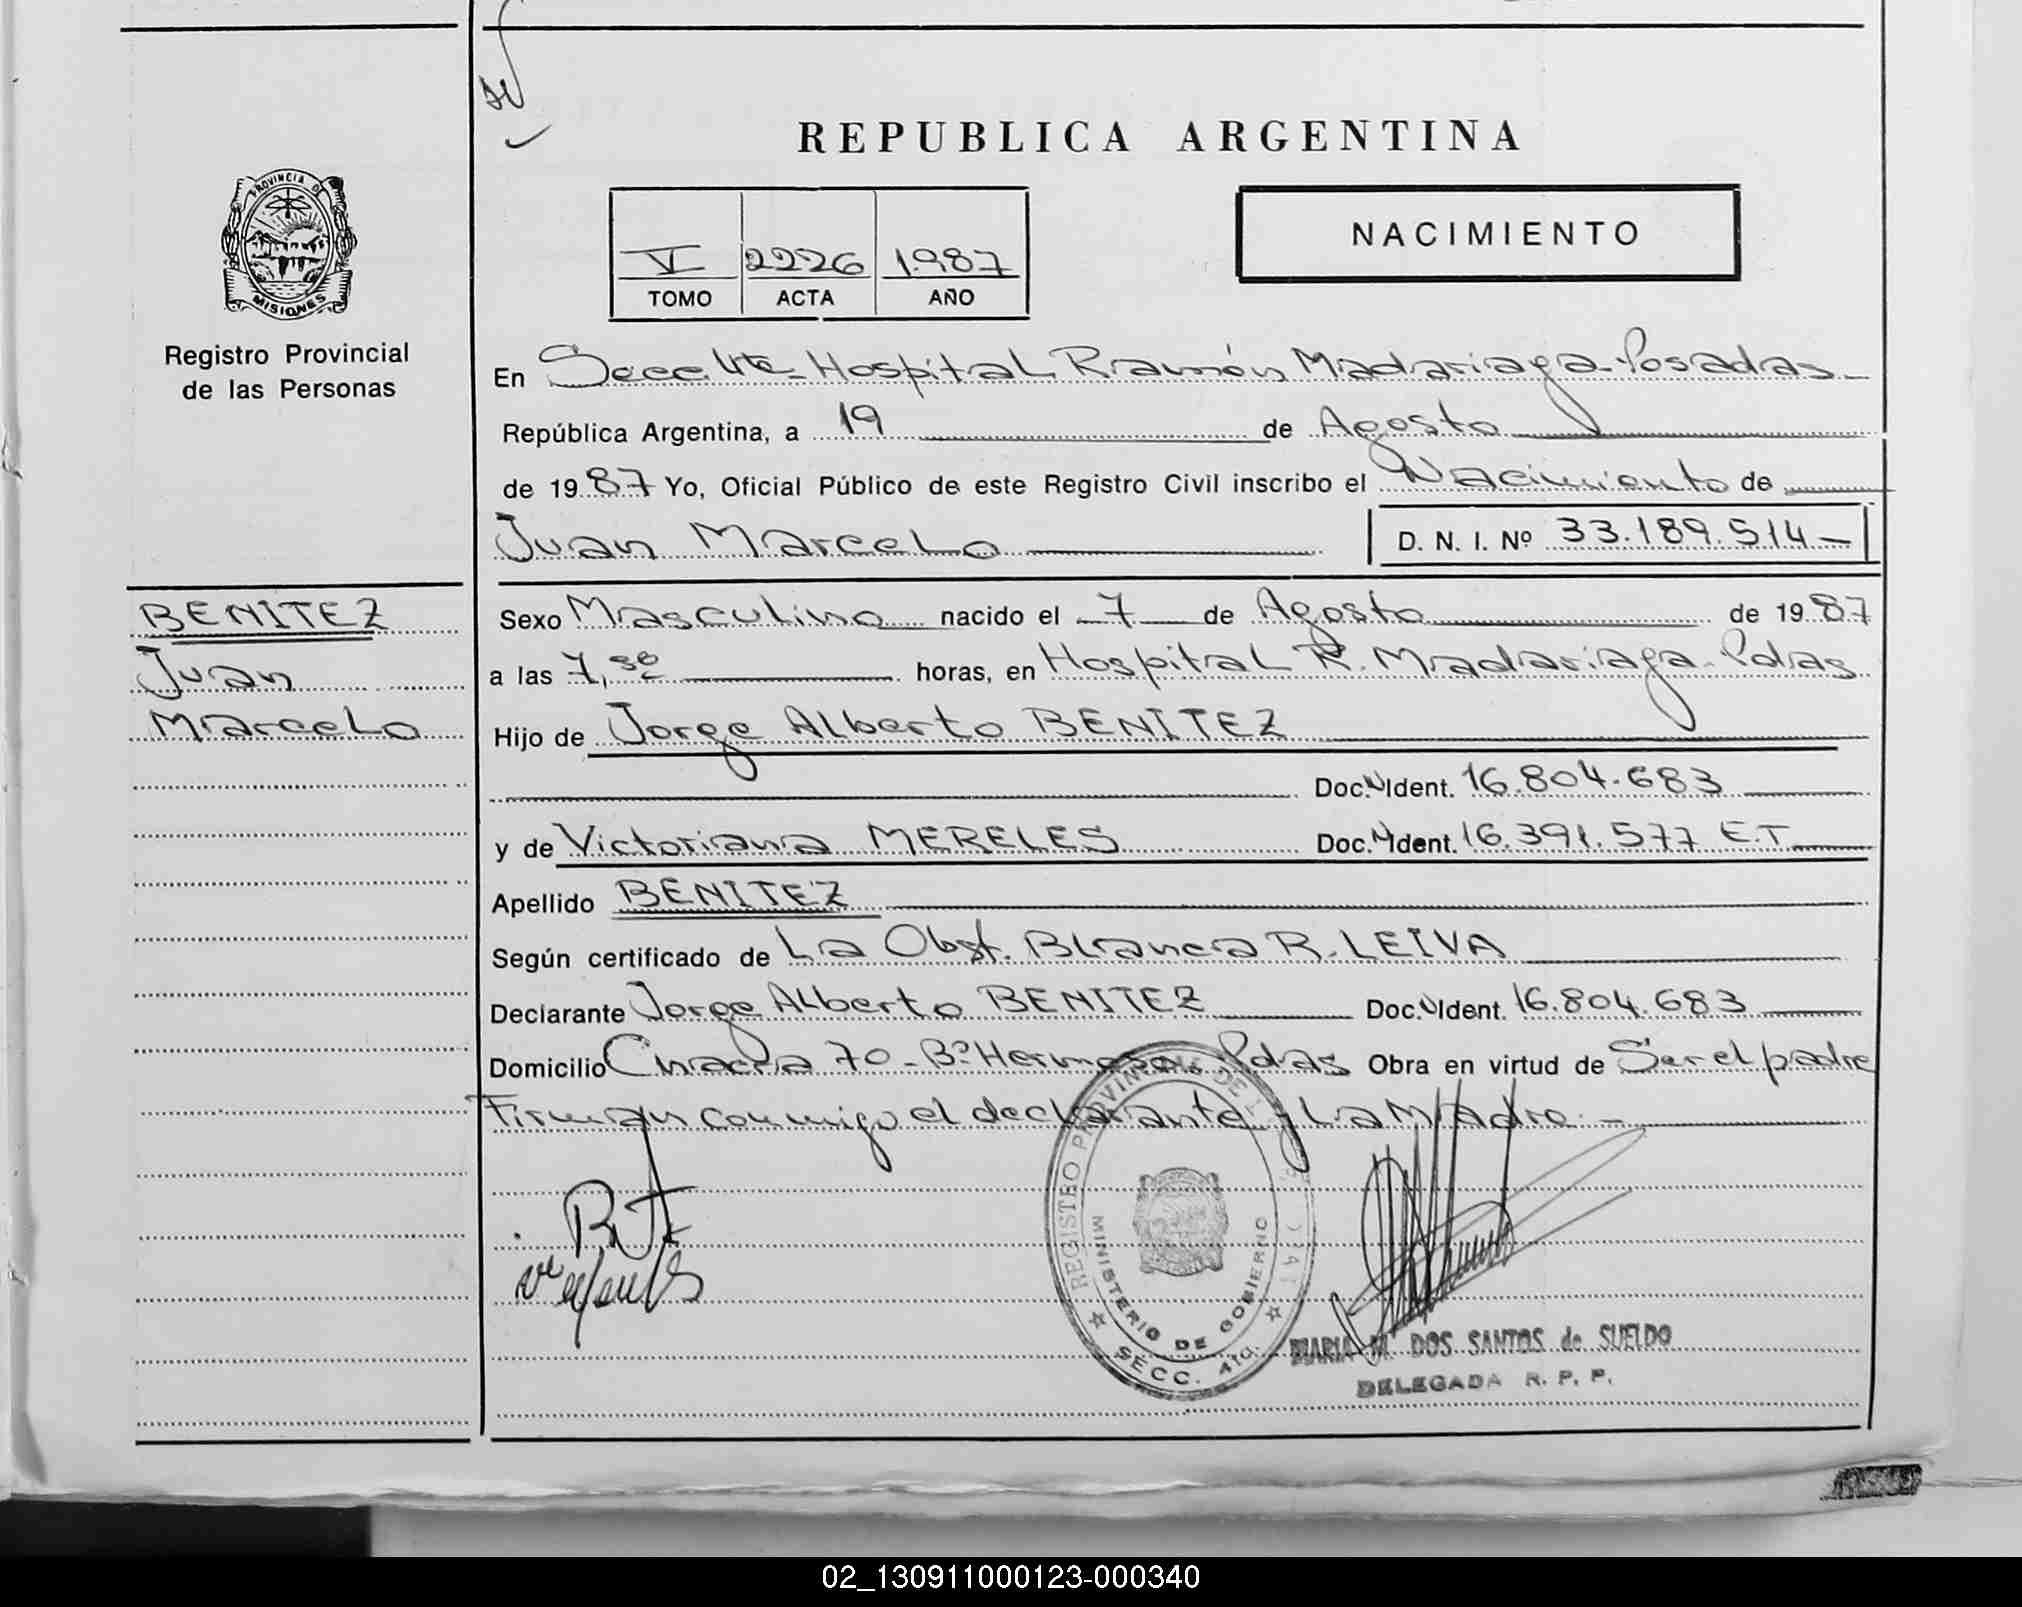 REPUBLICA ARGENTINA
PROVINCIA DE
MISIONES
Registro Provincial
de las Personas
V 2226 1.987
TOMO ACTA AÑO
NACIMIENTO
En Secc. 4ta- Hospital Ramón Madariaga-Posadas-
República Argentina, a 19 de Agosto
de 1987 Yo, Oficial Público de este Registro Civil inscribo el Nacimiento de
Juan Marcelo D. N. I. Nº 33.189.514-
BENITEZ
Juan
Marcelo
Sexo Masculino nacido el 7 de Agosto de 1987
a las 7,30 horas, en Hospital R. Madariaga-Pdas
Hijo de Jorge Alberto BENITEZ
Doc.N Ident. 16.804.683
y de Victoriana MERELES Doc.N Ident. 16.391.577 E.T.
Apellido BENITEZ
Según certificado de La Obst. Blanca R. LEIVA
Declarante Jorge Alberto BENITEZ Doc.N Ident. 16.804.683
Domicilio Chacra 70-Bº Hermoso Pdas Obra en virtud de Ser el padre
Firman conmigo el declarante y La Madre.-
REGISTRO PROVINCIAL DE
MINISTERIO DE GOBIERNO
SECC. 4ta.
MARIA M. DOS SANTOS de SUELDO
DELEGADA R. P. P.
02_130911000123-000340